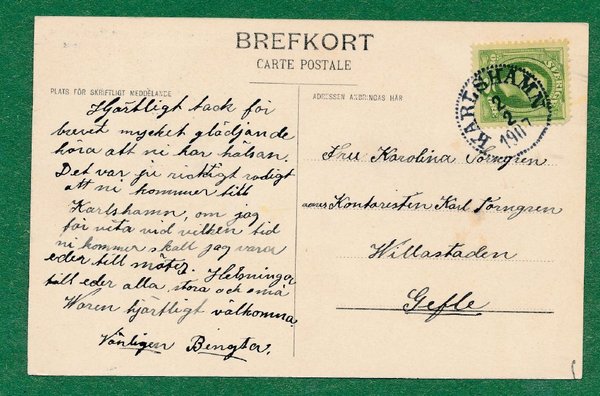 BREFKORT
CARTE POSTALE
PLATS FÖR SKRIFTLIGT MEDDELANDE
Hjärtligt tack för
brevet mycket glädjande
höra att ni har hälsan.
Det var ju riktigt rodigt
att ni kommer till
Karlshamn, om jag
får veta vid vilken tid
ni kommer skall jag vara
eder till mötes. Helsningar
till eder alla, stora och små
Waren hjärtligt välkomna
Vänligen Bengta.
ADRESSEN ANBRINGAS HÄR
Fru Karolina Torngren
Kontoristen Karl Torngren
Willastaden
Gefle
KARLSHAMN
2
1907
SVERIGE